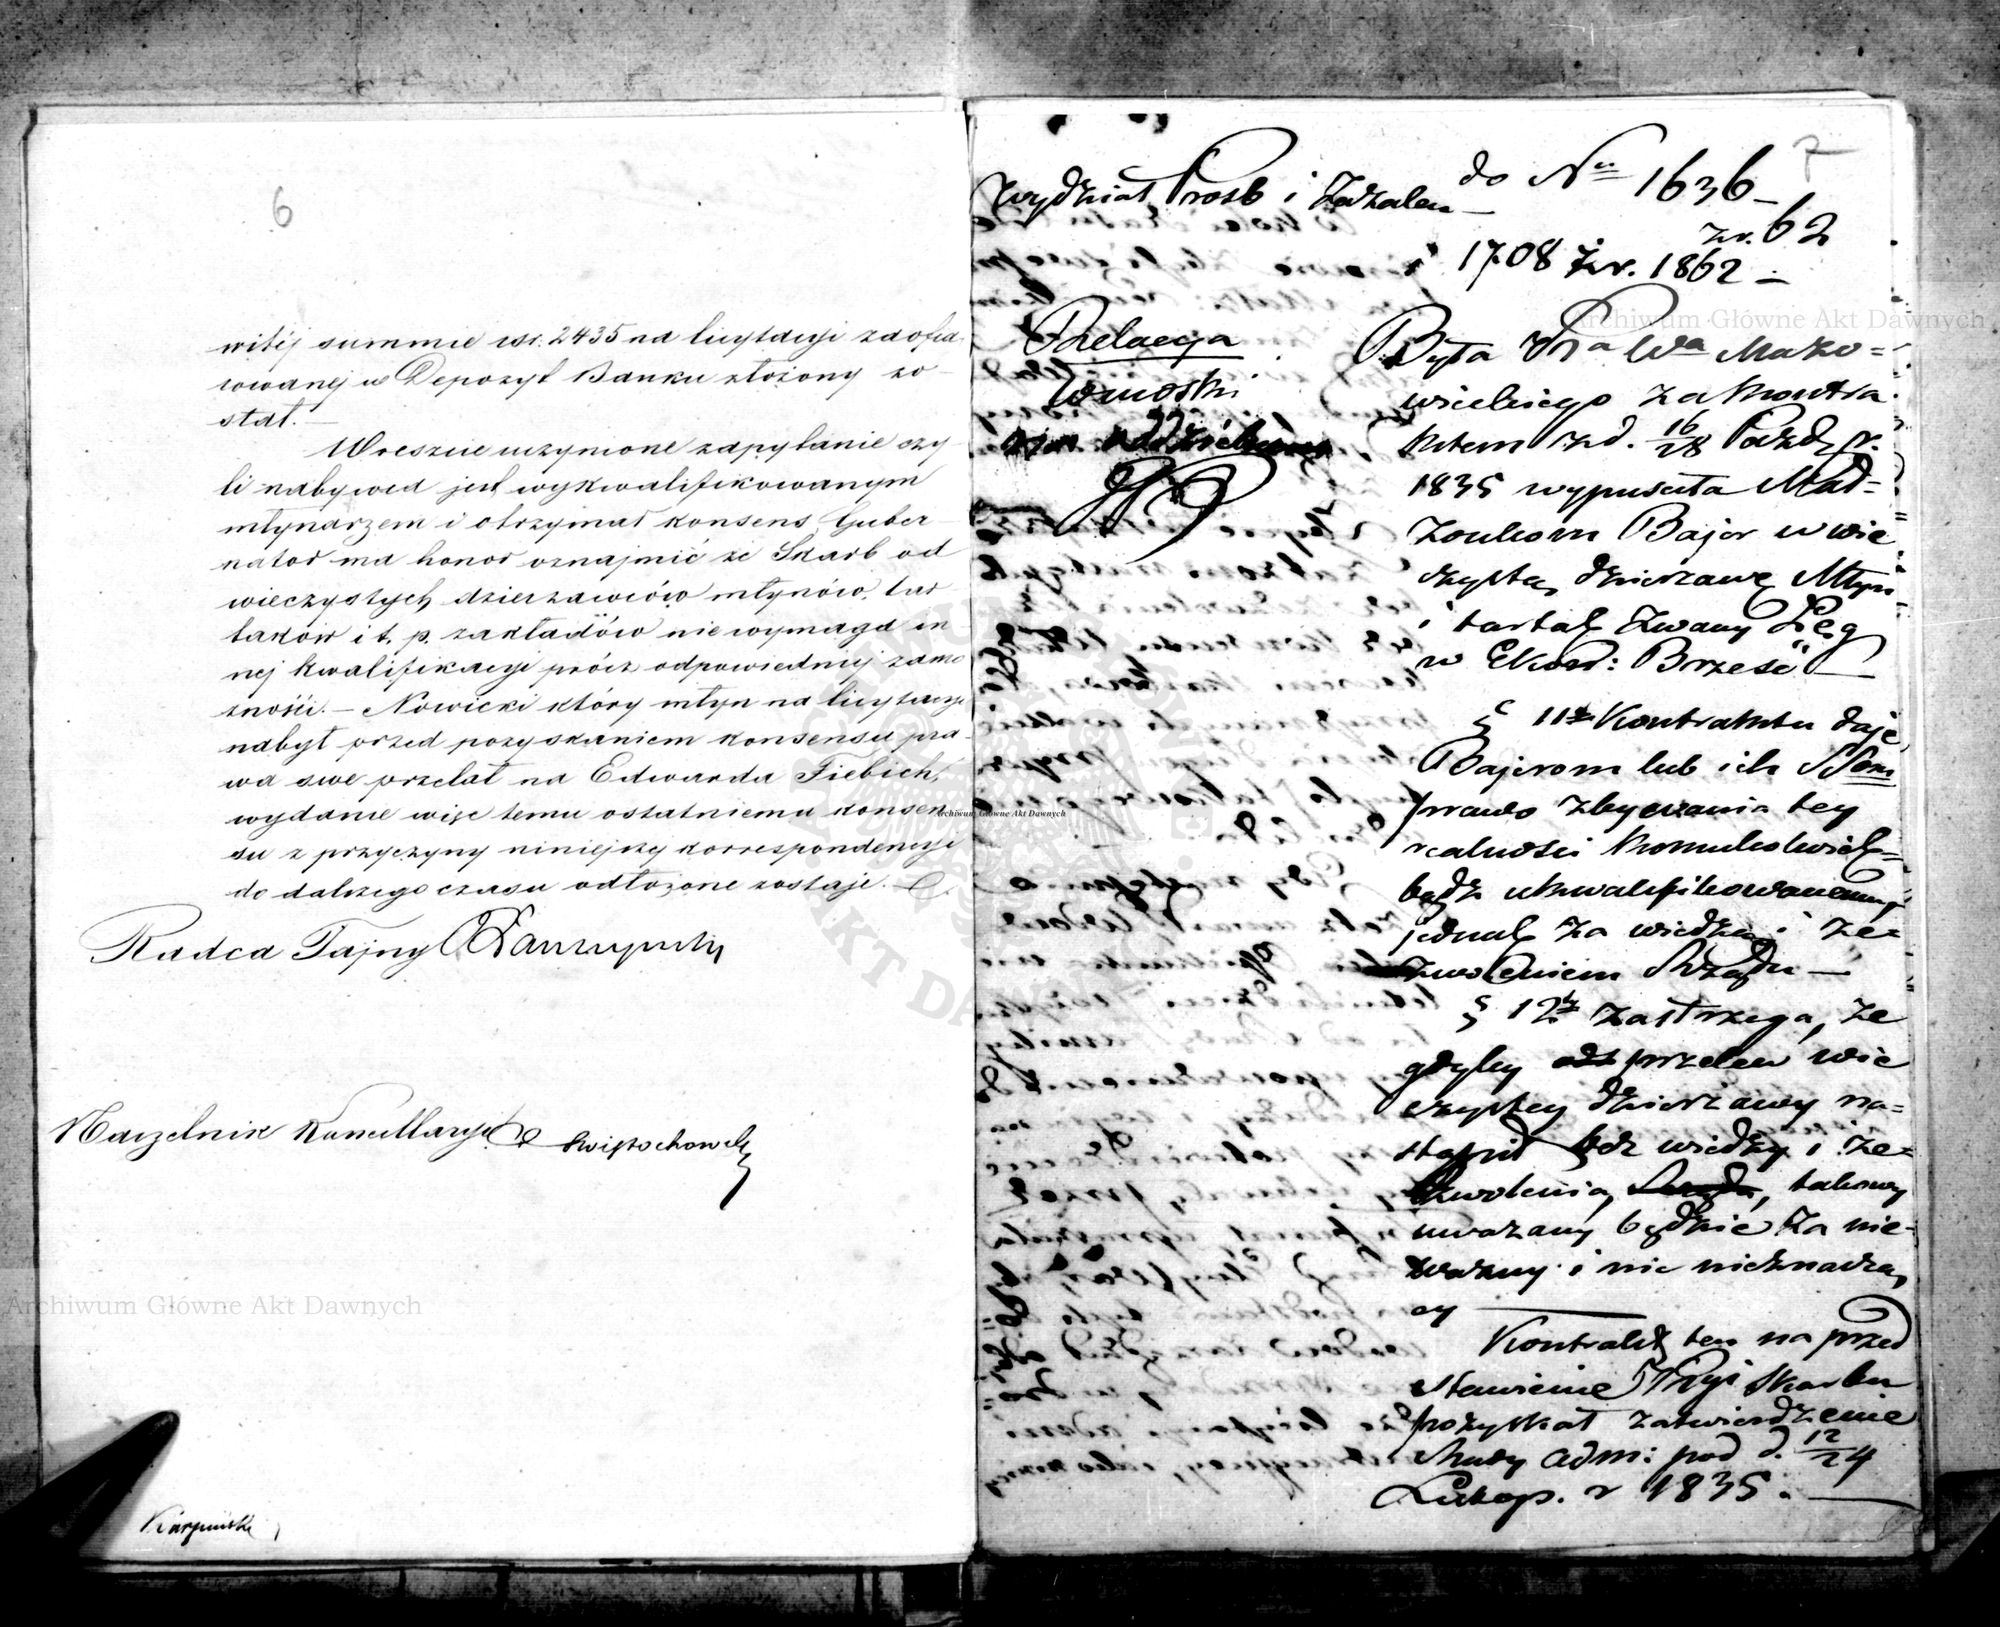 6
witéj summie rsr. 2435 na licytacyi zaofia-
rowanej w Depozyt Banku złożony zo-
stał. —
Wreszcie uczynione zapytanie czy-
li nabywca jest wykwalifikowanym
młynarzem i otrzymał konsens, Guber-
nator ma honor oznajmić że Skarb od
wieczystych dzierzawców młynów, tar-
taków i t. p. zakładów nie wymaga in-
nej kwalifikacyi prócz odpowiedniej zamo-
żności. — Nowicki który młyn na licytacyi
nabył przed pozyskaniem konsensu pra-
wa swe przelał na Edwarda Fiebich,
wydanie więc temu ostatniemu konsen-
su z przyczyny niniejszej korrespondencyi
do dalszego czasu odłożone zostaje.
Radca Tajny
Naczelnik Kancellaryi Świętochowski
Karpiński
7
do Nru 1636
Wydział Prośb i Zażaleń
zr. 62
i 1708 zr. 1862 —
Relacya
Wnioski
Była Kssa Wa Mazo=
wieckiego za kontra
ktem z d. 16/28 Paźdz. r.
1835 wypuściła Mał=
żonkom Bajer w wie
czystą dzierzawę Młyn
i tartak zwany Łęg
w Ekon: Brześć —
§ 11ty Kontraktu daje
Bajerom lub ich SSom
prawo zbywania tey
realności komukolwiek=
bądź ukwalifikowanemu,
jednak za wiedzą i ze=
zwoleniem Rządu —
§ 12ty zastrzega, że
gdyby przelew wie
czystey dzierzawy na=
stąpił bez wiedzy i ze=
zwolenia, Rządu, takowy
uważany będzie za nie=
ważny i nic nieznaczą,
cy —
Kontrakt ten na przed
stawienie Kssyi Skarbu
pozyskał zatwierdzenie
Rady Adm: pod d. 12/24
Listop. r 1835. —
Archiwum Główne Akt Dawnych
Archiwum Główne Akt Dawnych
Archiwum Główne Akt Dawnych